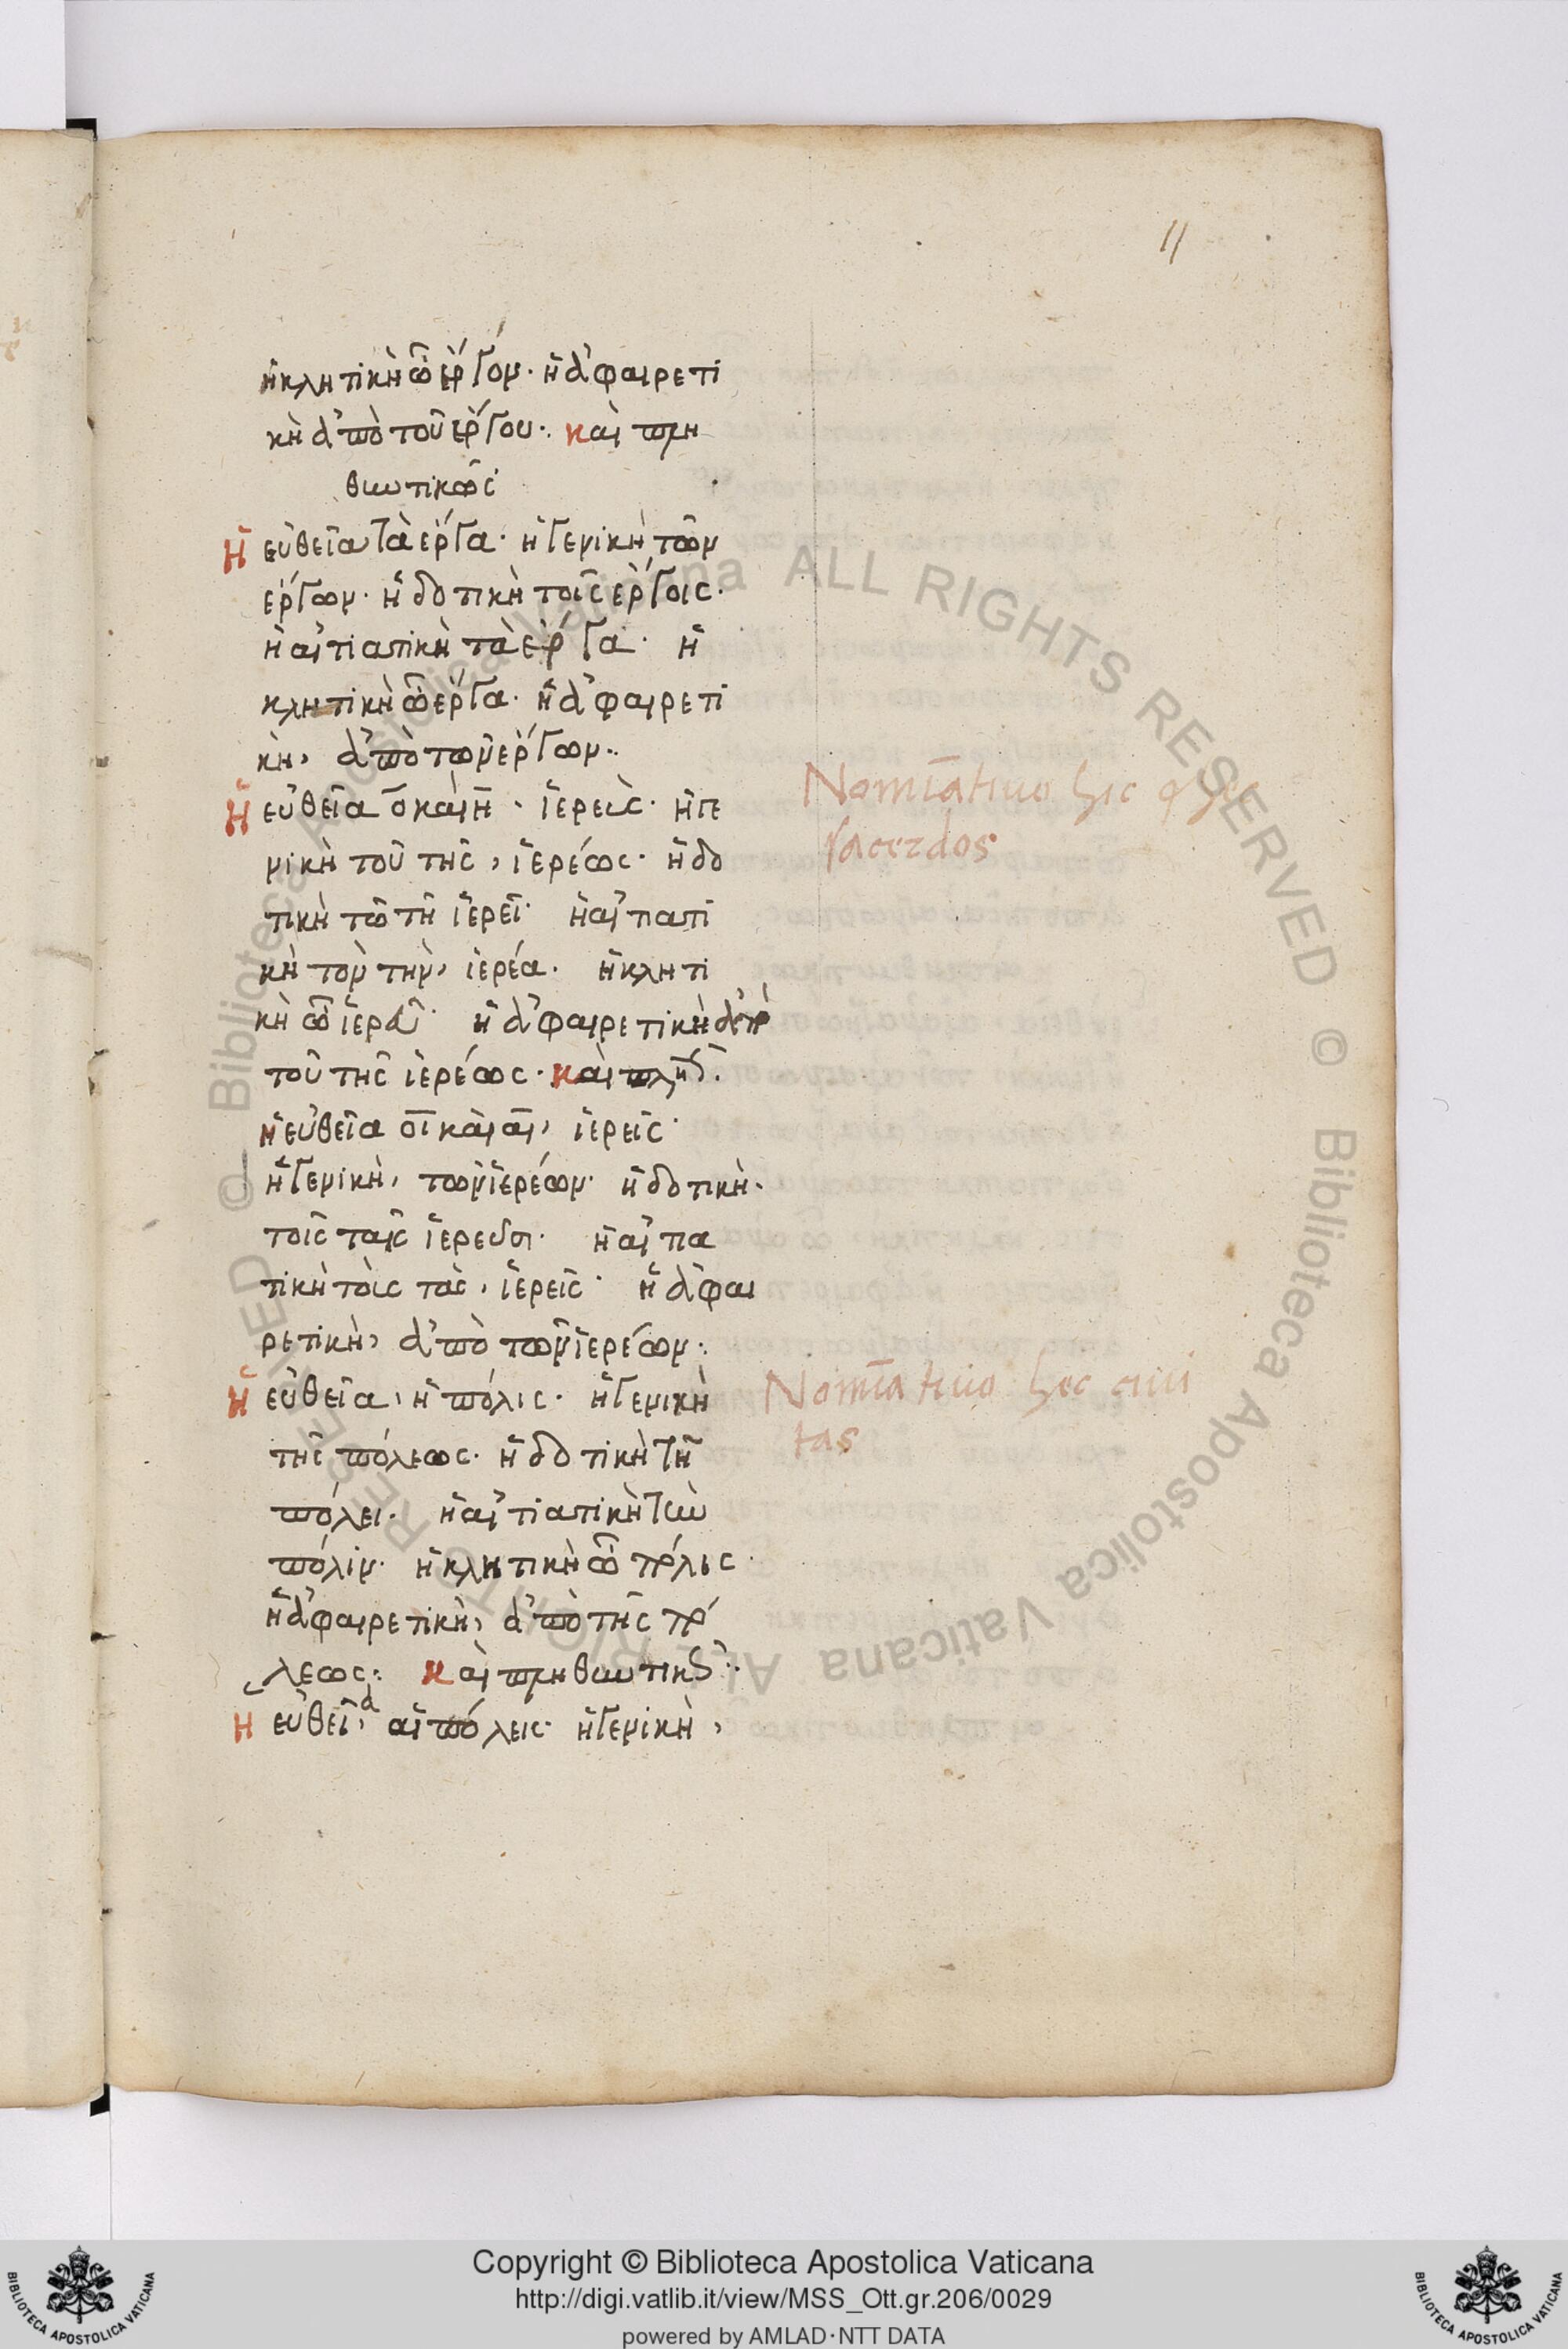 11
ἡ κλητικὴ ὦ ἔργον· ἡ ἀφαιρετι
κὴ ἀπὸ τοῦ ἔργου· καὶ πλη
θυντικῶς
Ἡ εὐθεῖα τὰ ἔργα· ἡ γενικὴ τῶν
ἔργων· ἡ δοτικὴ τοῖς ἔργοις·
ἡ αἰτιατικὴ τὰ ἔργα· ἡ
κλητικὴ ὦ ἔργα· ἡ ἀφαιρετι
κὴ, ἀπὸ τῶν ἔργων·
Ἡ εὐθεῖα ὁ καὶ ἡ · ἱερεὺς· ἡ γε
νικὴ τοῦ τῆς, ἱερέως· ἡ δο
τικὴ τῶ τῆ ἱερεῖ· ἡ αἰτιατι
κὴ τὸν τὴν, ἱερέα· ἡ κλητι
κὴ ὦ ἱερεῦ· ἡ ἀφαιρετικὴ ἀπὸ
τοῦ τῆς ἱερέως· καὶ πλη
ἡ εὐθεῖα οἱ καὶ αἱ, ἱερεῖς·
ἡ γενικὴ, τῶν ἱερέων· ἡ δοτικὴ·
τοῖς ταῖς ἱερεῦσι· ἡ αἰτια
τικὴ τοὺς τὰς, ἱερεῖς· ἡ ἀφαι
ρετικὴ, ἀπὸ τῶν ἱερέων:
Ἡ εὐθεῖα, ἡ πόλις· ἡ γενικὴ
τῆς πόλεως· ἡ δοτικὴ τῆ
πόλει· ἡ αἰτιατικὴ τὴν
πόλιν· ἡ κλητικὴ ὦ πόλις·
ἡ ἀφαιρετικὴ, ἀπὸ τῆς πό
λεως: καὶ πληθυντικῶς:
Ἡ εὐθεῖα, αἱ πόλεις· ἡ γενικὴ,
Nomīatiuo hic
sacerdos
Nomīatiuo hec ciui
tas
Copyright © Biblioteca Apostolica Vaticana
http://digi.vatlib.it/view/MSS_Ott.gr.206/0029
powered by AMLAD·NTT DATA
BIBLIOTECA APOSTOLICA VATICANA
BIBLIOTECA APOSTOLICA VATICANA
© Biblioteca Apostolica Vaticana ALL RIGHTS RESERVED
© Biblioteca Apostolica Vaticana ALL RIGHTS RESERVED